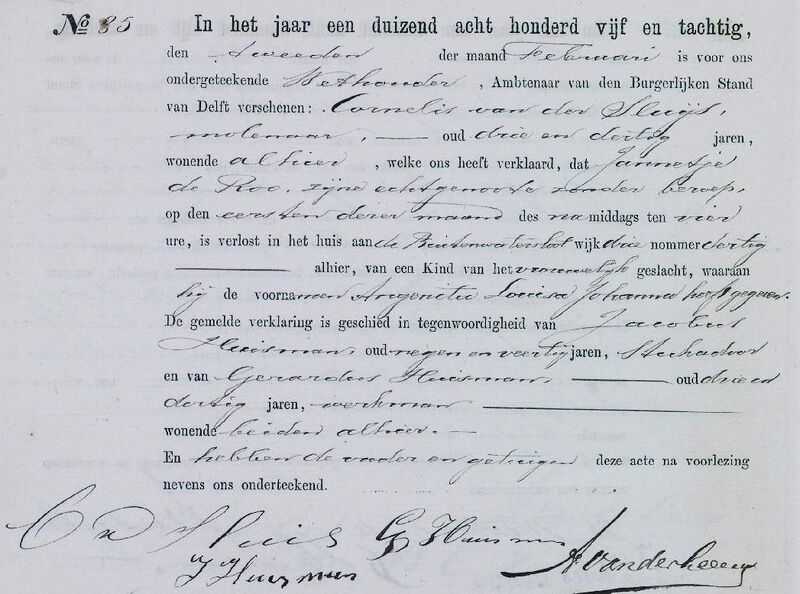 No 85 In het jaar een duizend acht honderd vijf en tachtig,
den tweeden der maand Februari is voor ons
ondergeteekende Wethouder, Ambtenaar van den Burgerlijken Stand
van Delft verschenen: Cornelis van der Sluijs,
molenaar, — oud drie en dertig jaren,
wonende alhier, welke ons heeft verklaard, dat Jannetje
de Roo, zijne echtgenoote zonder beroep,
op den eersten dezer maand des namiddags ten vier
ure, is verlost in het huis aan de Buitenwatersloot wijk drie nommer dertig
— alhier, van een Kind van het vrouwelijk geslacht, waaraan
hij de voornamen Louisa Johanna heeft gegeven.
De gemelde verklaring is geschied in tegenwoordigheid van Jacobus
Huisman, oud negen en veertig jaren,
en van Gerardus Huisman, — oud drie en
dertig jaren, werkman —
wonende beiden alhier. —
En hebben de vader en getuigen deze acte na voorlezing
nevens ons onderteekend.
Sluis G Huisman
J Huisman